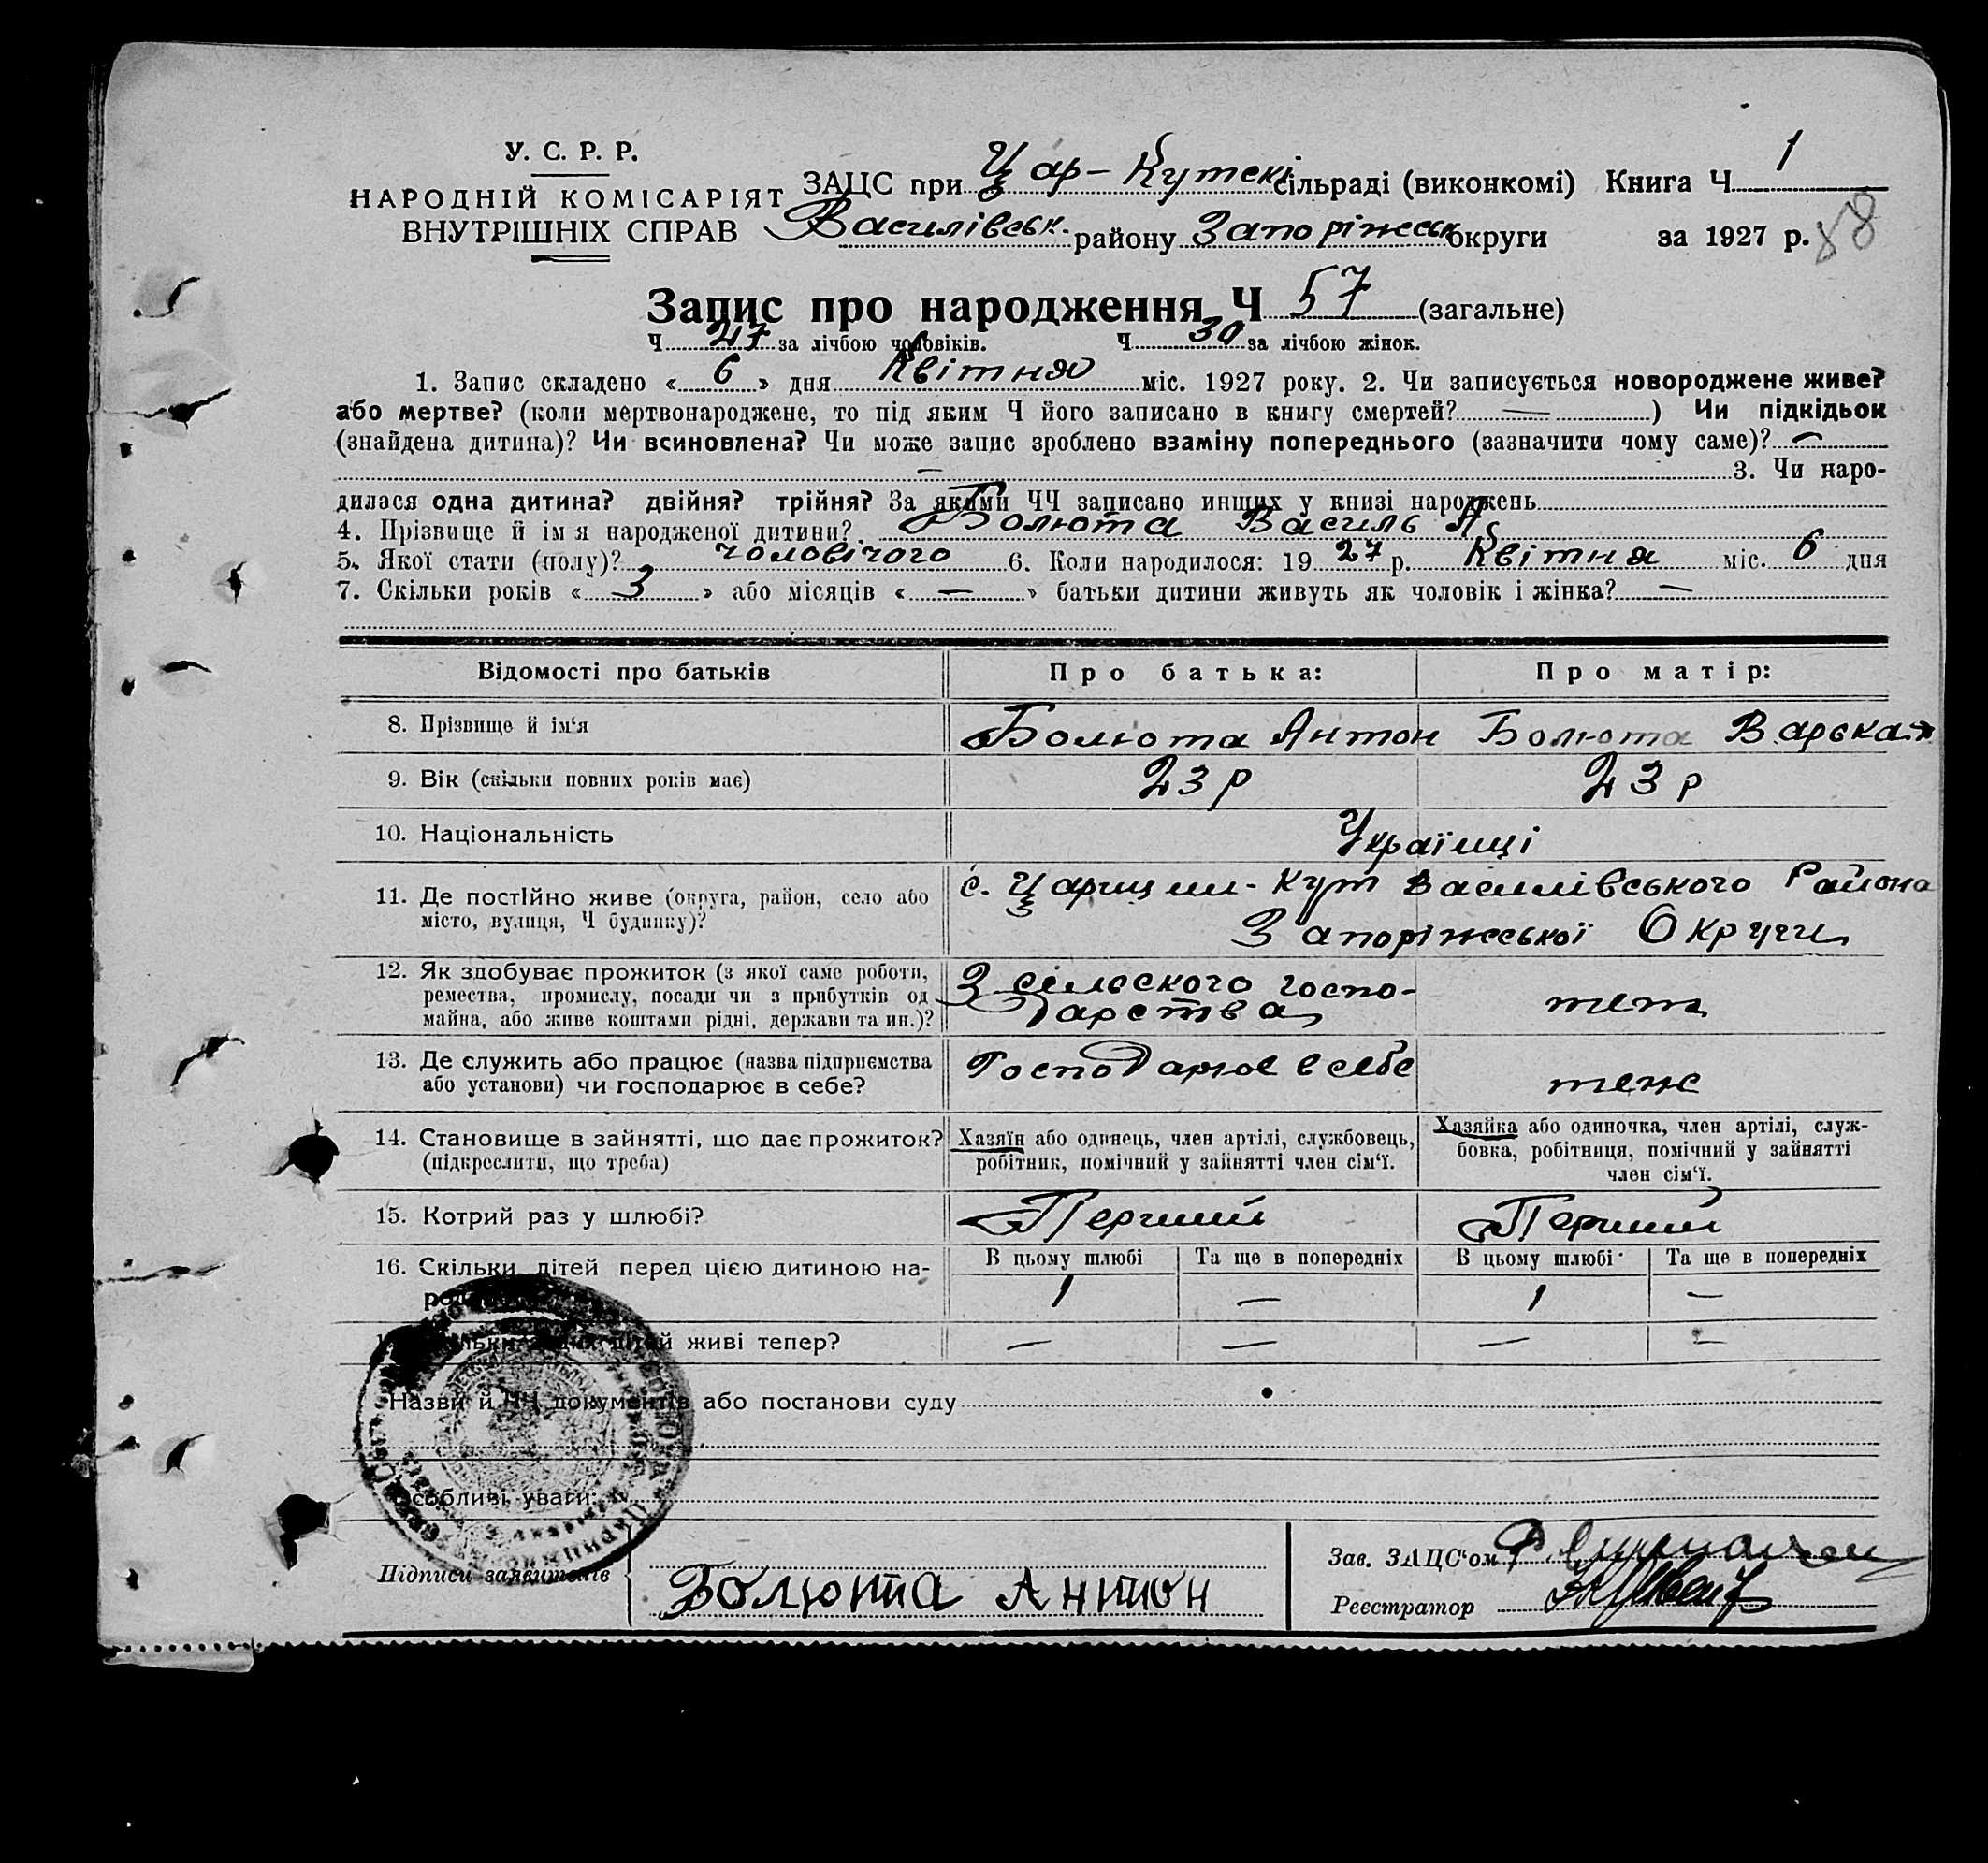 У. С. Р. Р.
НАРОДНІЙ КОМІСАРІЯТ
ВНУТРІШНІХ СПРАВ
ЗАЦС при Цар-Кутскі сільраді (виконкомі) Книга Ч 1
Василівськ. району Запоріжськ округи за 1927 р. 88
Запис про народження Ч 57 (загальне)
Ч 27 за лічбою чоловіків. Ч 30 за лічбою жінок.
1. Запис складено « 6 » дня Квітня міс. 1927 року. 2. Чи записується новороджене живе?
або мертве? (коли мертвонароджене, то під яким Ч його записано в книгу смертей? — ) Чи підкідьок
(знайдена дитина)? Чи всиновлена? Чи може запис зроблено взаміну попереднього (зазначити чому саме)? —
— 3. Чи наро-
дилася одна дитина? двійня? трійня? За якими ЧЧ записано инших у книзі народжень
4. Прізвище й ім я народженої дитини? Болюта Василь А
5. Якої стати (полу)? чоловічого 6. Коли народилося: 19 27 р. Квітня міс. 6 дня
7. Скільки років « 3 » або місяців « — » батьки дитини живуть як чоловік і жінка? —
Відомості про батьків Про батька: Про матір:
8. Прізвище й ім'я Болюта Антон Болюта
9. Вік (скільки повних років має) 23 р 23 р
10. Національність Україиці
11. Де постійно живе (округа, район, село або
місто, вулиця, Ч будинку)?
с. Царицин-Кут Василівського Района
Запоріжської Округи
12. Як здобуває прожиток (з якої саме роботи,
ремества, промислу, посади чи з прибутків од
майна, або живе коштами рідні, держави та ин.)?
З сільского госпо-
дарства
13. Де служить або працює (назва підприємства
або установи) чи господарює в себе?
Господарює в себе теже
14. Становище в зайнятті, що дає прожиток?
(підкреслити, що треба)
Хазяїн або одинець, член артілі, службовець,
робітник, помічний у зайнятті член сім'ї.
Хазяйка або одиночка, член артілі, служ-
бовка, робітниця, помічний у зайнятті
член сім'ї.
15. Котрий раз у шлюбі? Перший Перший
16. Скільки дітей перед цією дитиною на-
В цьому шлюбі Та ще в попередніх В цьому шлюбі Та ще в попередніх
1 — 1 —
живі тепер? — — — —
Назви й ЧЧ документів або постанови суду
Особливі уваги:
Підписи заявителів Болюта Антон
Зав. ЗАЦС'ом
Реєстратор